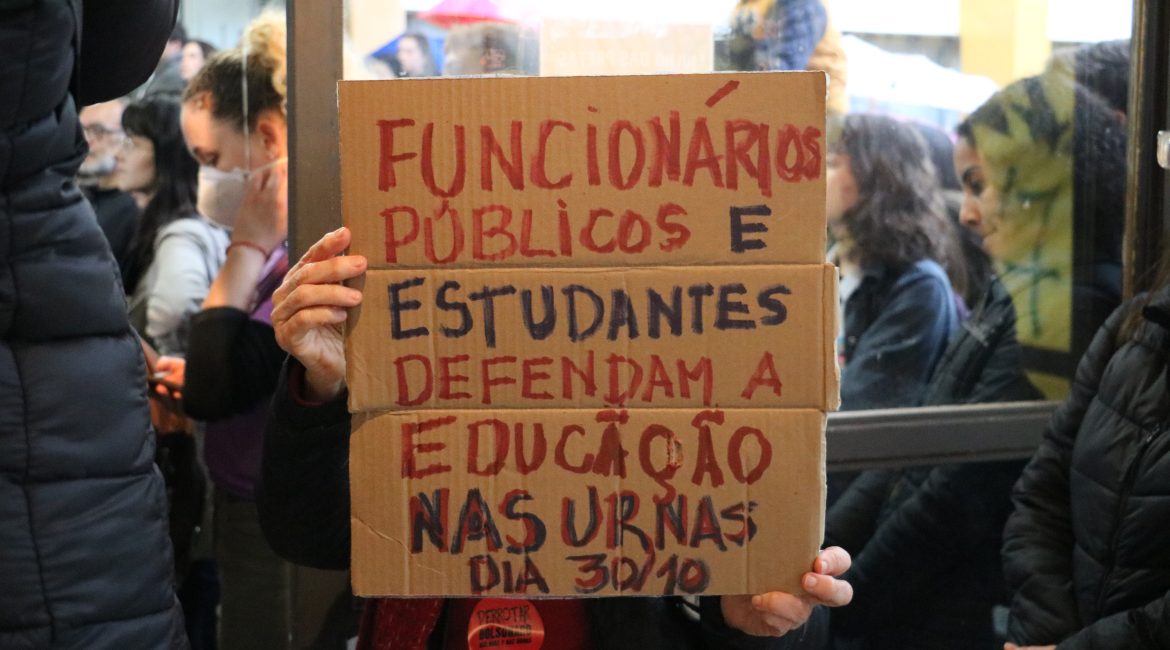 FUNCIONÁRIOS
PÚBLICOS E
ESTUDANTES
DEFENDAM A
EDUCÃÇÃO
NAS URNAS
DIA 30/10
DERROTAR
BOLSONARO
NAS RUAS E NAS URNAS